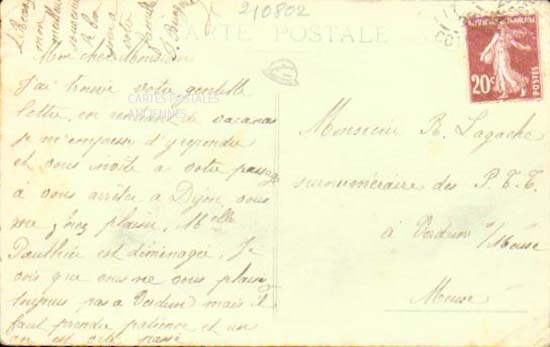 210802
CARTE POSTALE
RÉPUBLIQUE FRANÇAISE
20c
POSTES
CARTES POSTALES
ANCIENNES
Mon cher Monsieur
J'ai trouvé votre gentille
lettre en rentrant de vacances
je m'empresse d'y répondre
et vous invite a votre passage
à vous arrêter a Dijon, vous
me ferez plaisir. Melle
est déménagée. Je
vois que vous ne vous plaisez
toujours pas a Verdun mais il
faut prendre patience et un
an est vite passé
Monsieur R. Lagache
surnuméraire des P.T.T.
à Verdun s/Meuse
Meuse